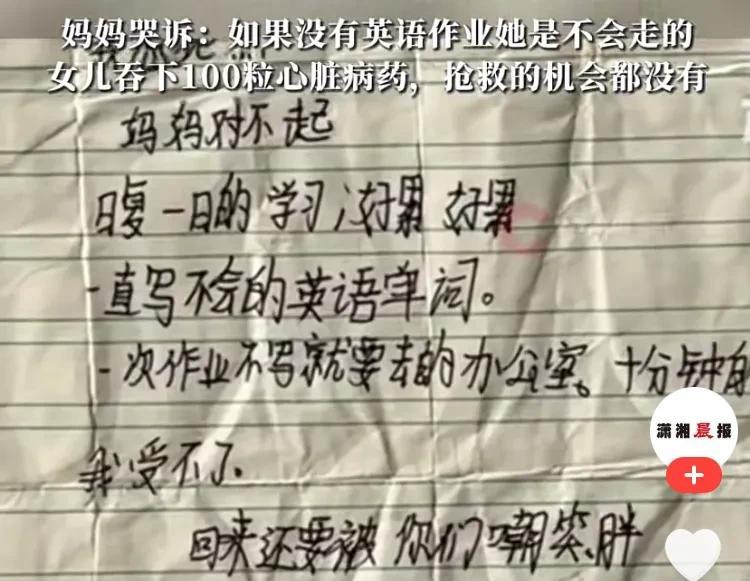 妈妈哭诉：如果没有英语作业她是不会走的
女儿吞下100粒心脏病药，抢救的机会都没有
妈妈对不起
日复一日的学习，好累 好累
一直写不会的英语单词。
一次作业不写就要去的办公室。十分钟的
潇湘晨报
我受不了
回来还要被你们嘲笑胖